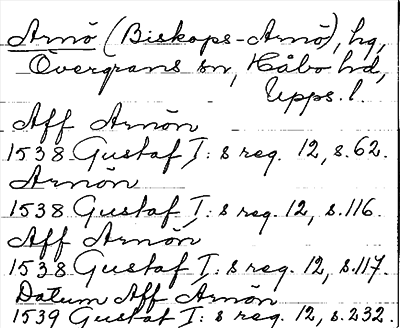 Arnö (Biskops-Arnö), hg,
Övergrans sn, Håbo hd,
Upps. l.
Aff Arnön
1538 Gustaf I: s reg. 12, s. 62.
Arnön
1538 Gustaf I: s reg. 12, s. 116.
Aff Arnön
1538 Gustaf I: s reg. 12, s. 117.
Datum Aff Arnön
1539 Gustaf I: s reg. 12, s. 232.